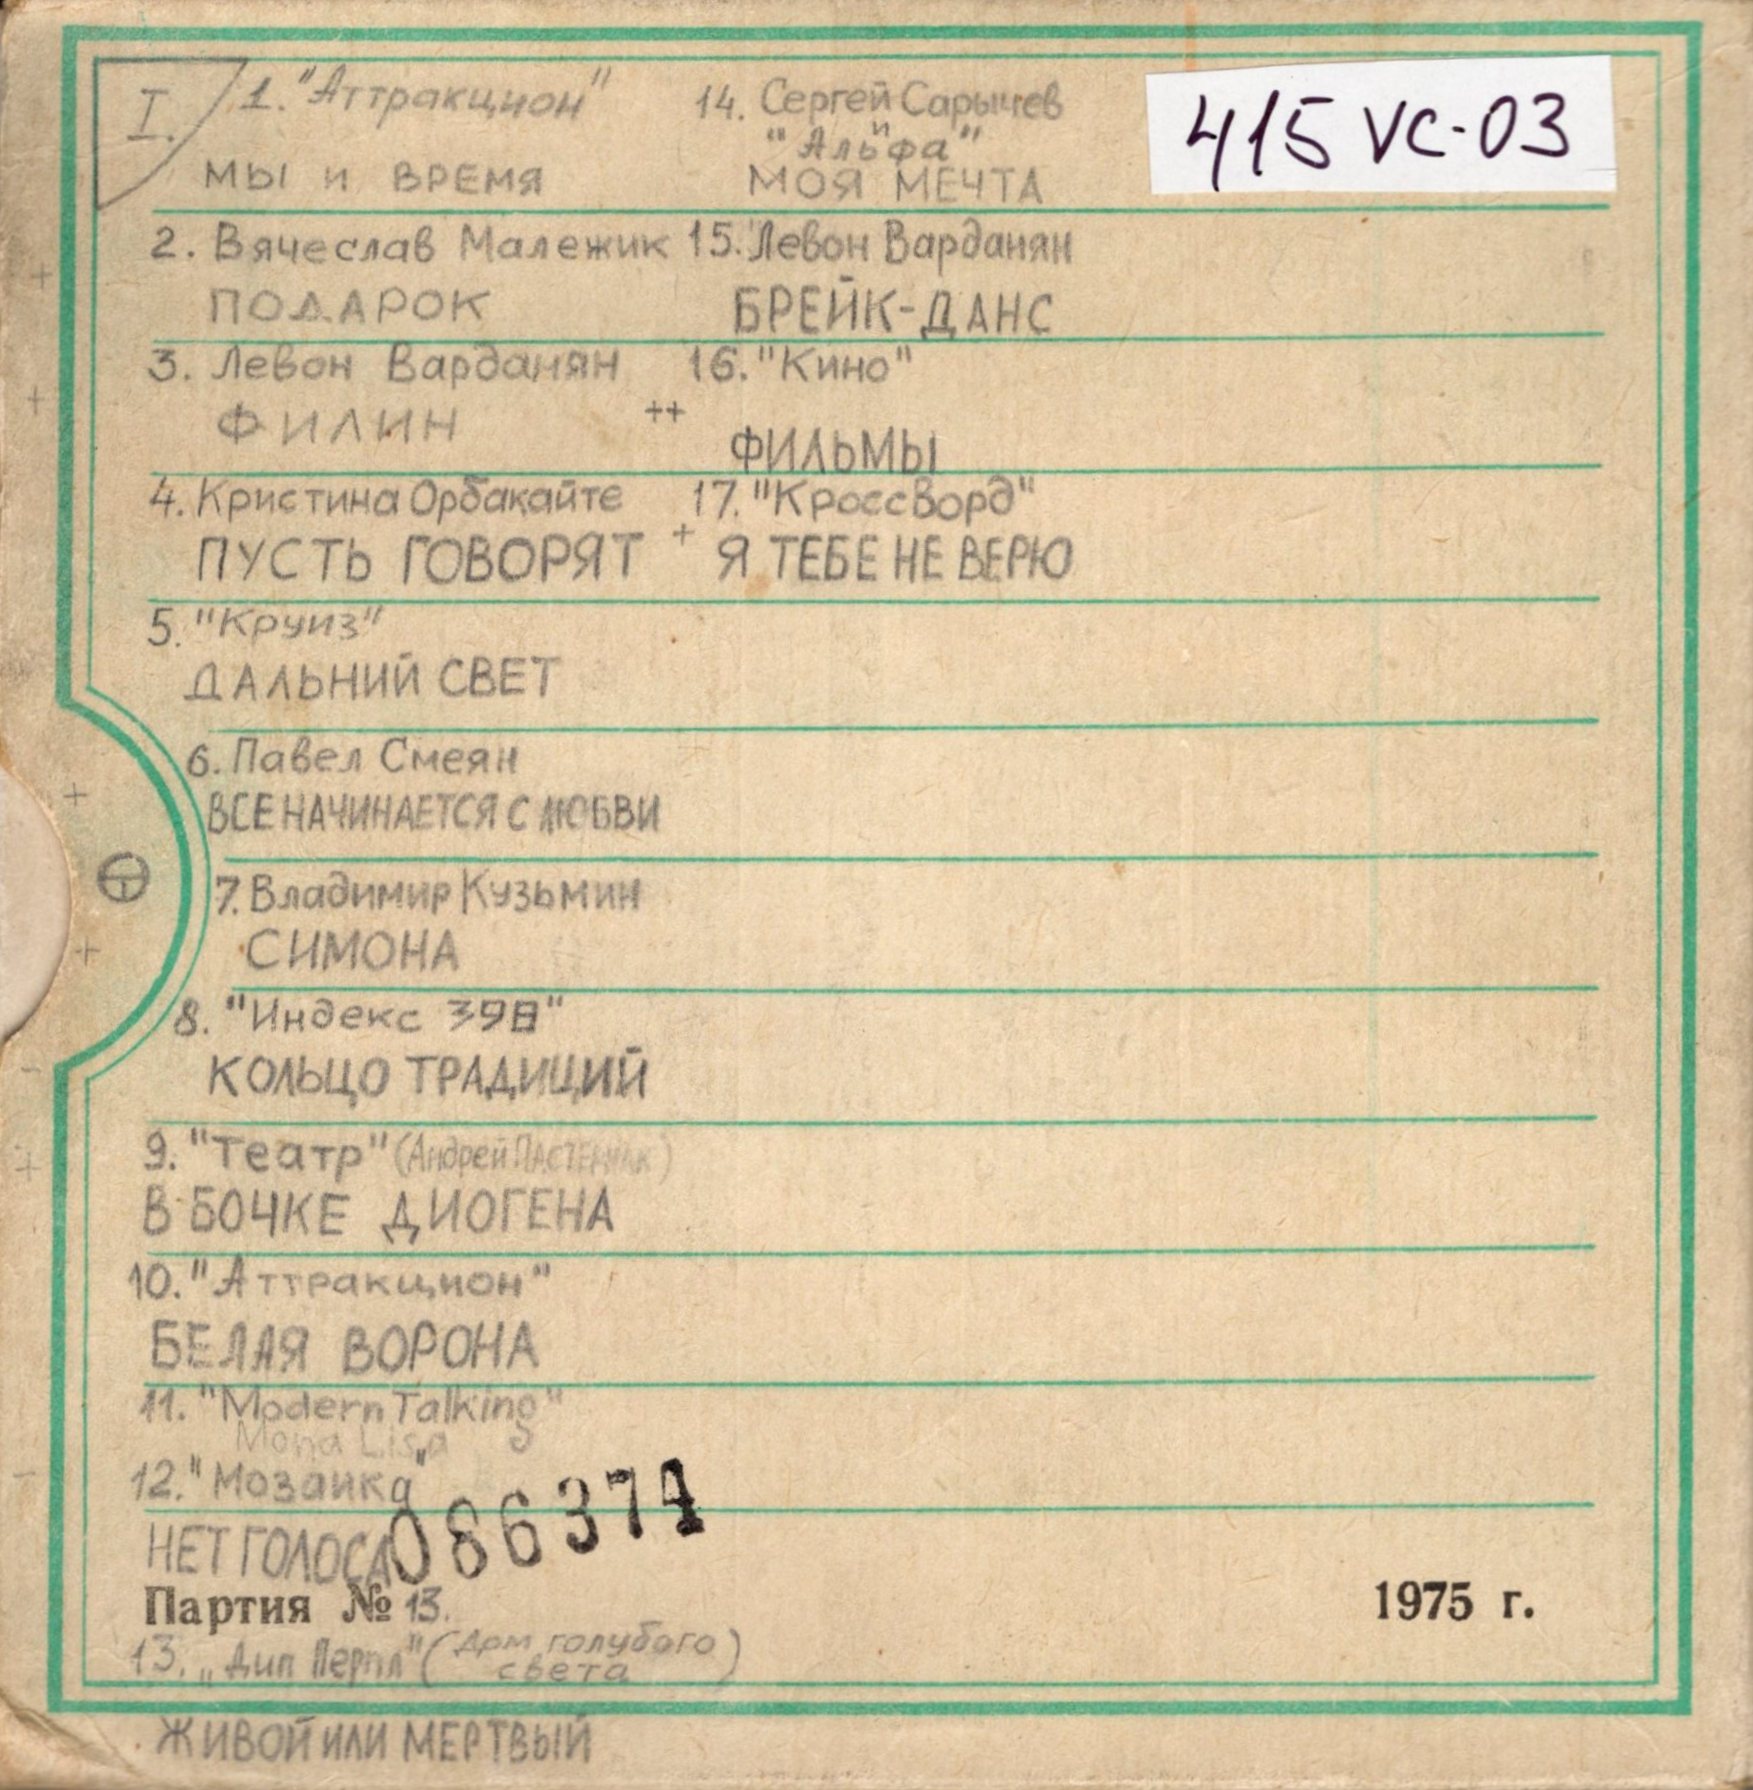 I.
1. "Аттракцион"
МЫ И ВРЕМЯ
2. Вячеслав Малежик
ПОДАРОК
3. Левон Варданян
ФИЛИН
4. Кристина Орбакайте
ПУСТЬ ГОВОРЯТ
5. "Круиз"
ДАЛЬНИЙ СВЕТ
6. Павел Смеян
ВСЕ НАЧИНАЕТСЯ С ЛЮБВИ
7. Владимир Кузьмин
СИМОНА
8. "Индекс 398"
КОЛЬЦО ТРАДИЦИЙ
9. "Театр" (Андрей ПАСТЕРНАК)
В БОЧКЕ ДИОГЕНА
10. "Аттракцион"
БЕЛАЯ ВОРОНА
11. "Modern Talking"
Mona Lisa
12. "Мозаика"
НЕТ ГОЛОСА
086374
Партия № 13.
13. „Дип Перпл" (Дом голубого
света)
ЖИВОЙ ИЛИ МЕРТВЫЙ
14. Сергей Сарычев
и
"Альфа"
МОЯ МЕЧТА
15. Левон Варданян
БРЕЙК-ДАНС
16. "Кино"
++
ФИЛЬМЫ
17. "Кроссворд"
+ Я ТЕБЕ НЕ ВЕРЮ
415 VC-03
1975 г.